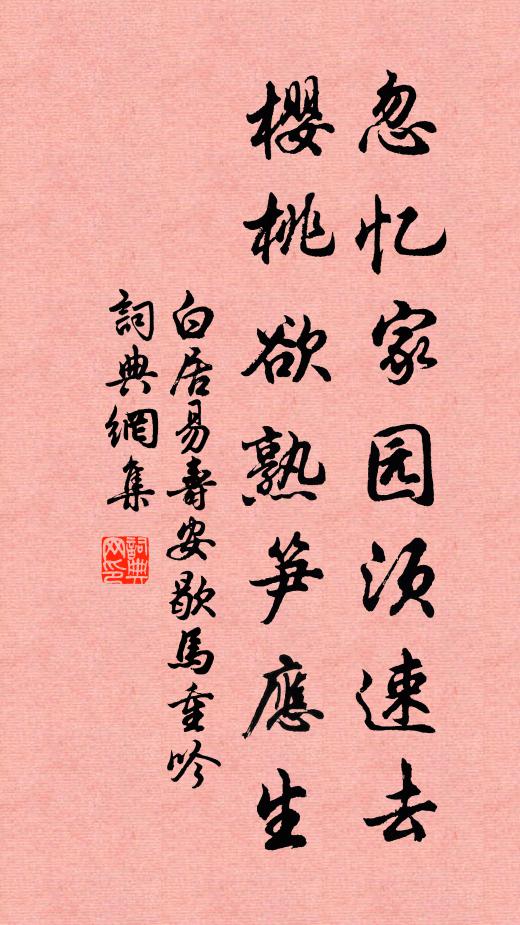 忽忆家园须速去
櫻桃欲熟笋應生
白居易壽安歇馬重吟
詞典網集
詞典
网印